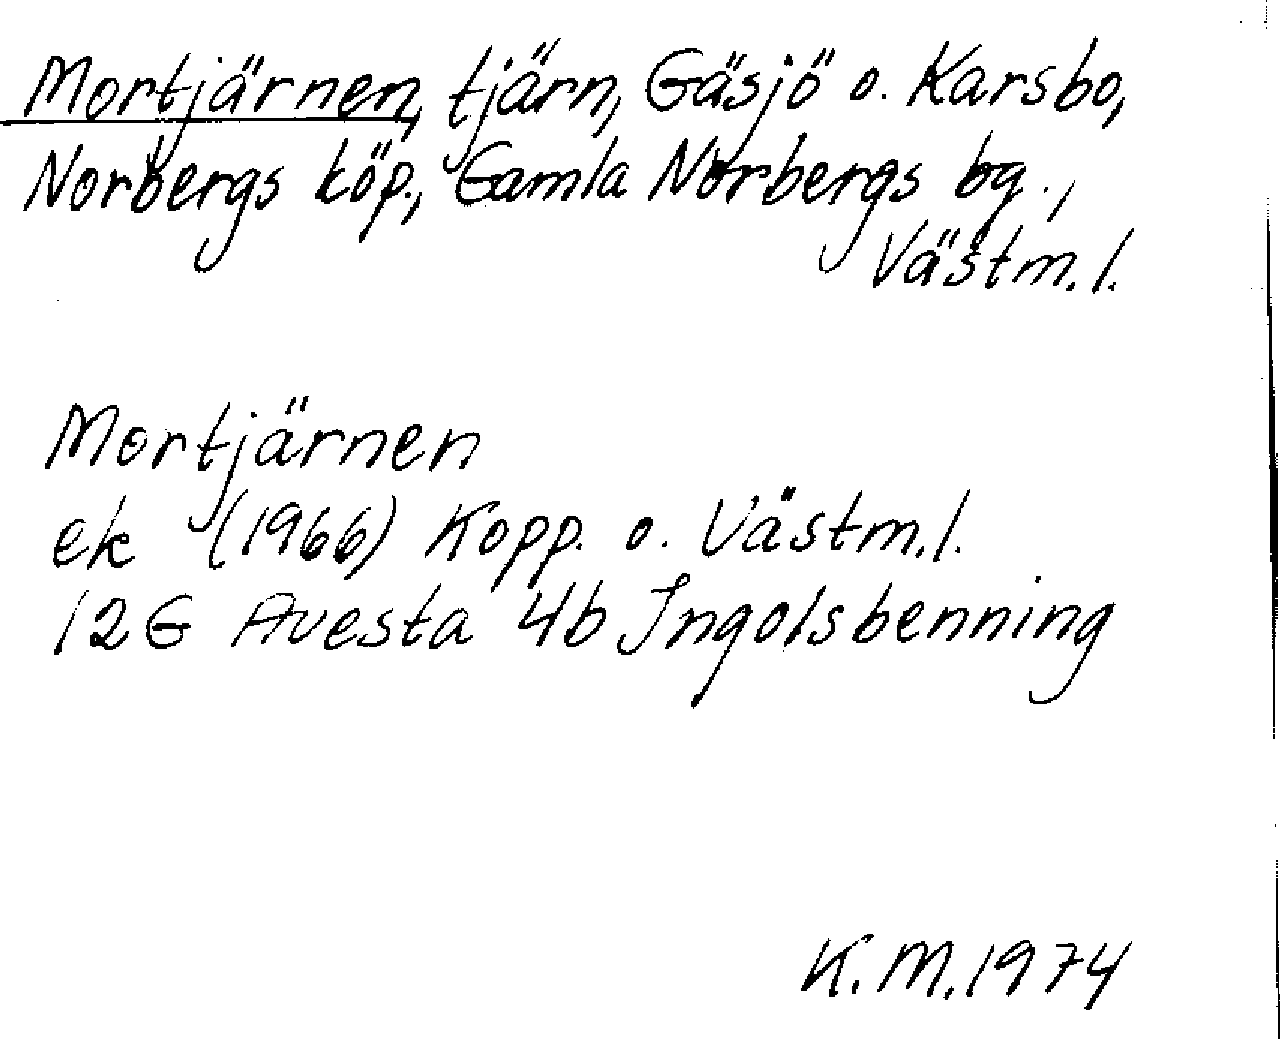 Mortjärnen, tjärn, Gäsjö o. Karsbo,
Norbergs köp., Gamla Norbergs bg.,
Västm. l.
Mortjärnen
ek (1966) Kopp. o. Västm. l.
12G Avesta 4b Ingolsbenning
K. M. 1974